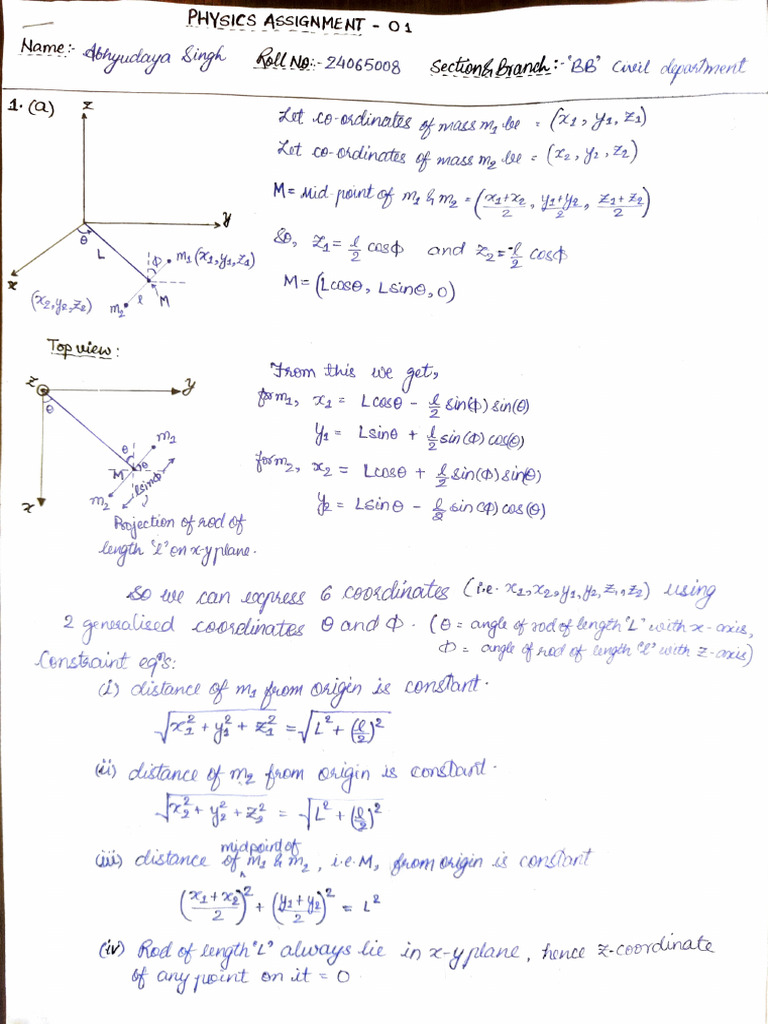 PHYSICS ASSIGNMENT - 01
Name:- Abhyudaya Singh Roll No:- 24065008 Section & Branch:- 'BB' Civil department
1. (a)
z
y
x
θ
L
ϕ
m₁ (x₁, y₁, z₁)
(x₂, y₂, z₂)
m₂
l
M
Let co-ordinates of mass m₁ be = (x₁, y₁, z₁)
Let co-ordinates of mass m₂ be = (x₂, y₂, z₂)
M = Mid-point of m₁ & m₂ = ((x₁+x₂)/2, (y₁+y₂)/2, (z₁+z₂)/2)
So, z₁ = l/2 cosϕ and z₂ = -l/2 cosϕ
M = (Lcosθ, Lsinθ, 0)
Top view:
z
y
x
θ
θ
m₁
M
θ
m₂
lsinϕ
Projection of rod of
length 'l' on x-y plane.
From this we get,
for m₁, x₁ = Lcosθ - l/2 sin(ϕ) sin(θ)
y₁ = Lsinθ + l/2 sin(ϕ) cos(θ)
for m₂, x₂ = Lcosθ + l/2 sin(ϕ) sin(θ)
y₂ = Lsinθ - l/2 sin(ϕ) cos(θ)
So we can express 6 coordinates (i.e. x₁, x₂, y₁, y₂, z₁, z₂) using
2 generalised coordinates θ and ϕ. (θ = angle of rod of length "L" with x-axis,
ϕ = angle of rod of length 'l' with z-axis)
Constraint eqⁿs:
(i) distance of m₁ from origin is constant.
√(x₁² + y₁² + z₁²) = √(L² + (l/2)²)
(ii) distance of m₂ from origin is constant.
√(x₂² + y₂² + z₂²) = √(L² + (l/2)²)
(iii) distance of midpoint of m₁ & m₂, i.e. M, from origin is constant
((x₁+x₂)/2)² + ((y₁+y₂)/2)² = L²
(iv) Rod of length "L" always lie in x-y plane, hence z-coordinate
of any point on it = 0